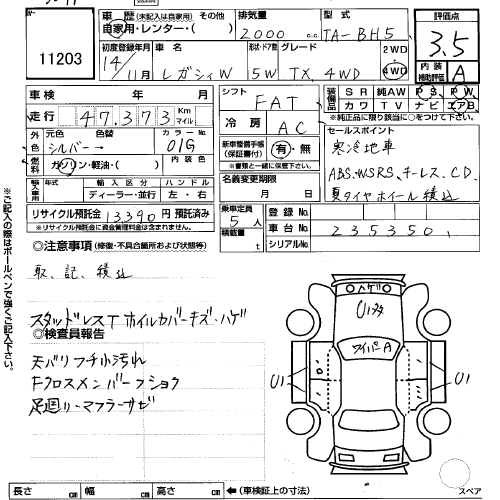 11203
車 歴 (未記入は自家用) その他
自家用・レンター・( )
排気量
2000 c.c.
型式
TA-BH5
評価点
3.5
内装
補助評価
A
初度登録年月
14年
11月
車名
レガシィW
形状・ドア数
5W
グレード
TX, 4WD
2WD
4WD
車検 年 月
走行 47,373 Km
マイル
シフト
FAT
冷房
AC
装備品
SR 純AW PS PW
カワ TV ナビ エアB
*純正品に限り該当に○をつけて下さい。
外色
元色 色替
シルバー→
カラーNo
01G
燃料
ガソリン・軽油・( )
内装色
新車整備手帳
(保証書付)
有・無
*書類と一緒に保管下さい。
セールスポイント
寒冷地車
ABS、WSRS、キーレス、CD、
夏タイヤホイール積込
輸入車
年式
輸入区分 ハンドル
ディーラー・並行 左・右
名義変更期限
月 日
リサイクル預託金 13,390円 預託済み
※リサイクル預託金に資金管理料金は含まれません。
乗車定員
5人
積載量
t
登録No.
車台No. 235350
シリアルNo.
◎注意事項 (修復・不具合箇所および状態等)
取、記、積込
スタッドレスT ホイルカバーキズ・ハゲ
◎検査員報告
天バリフチ小汚れ
Fクロスメンバーフショク
足廻リ・マフラーサビ
ハゲ
U1
ワイパーA
U1
U1
長さ cm 幅 cm 高さ cm ←(車検証上の寸法)
スペア
※ご記入の際はボールペンで強くご記入下さい。